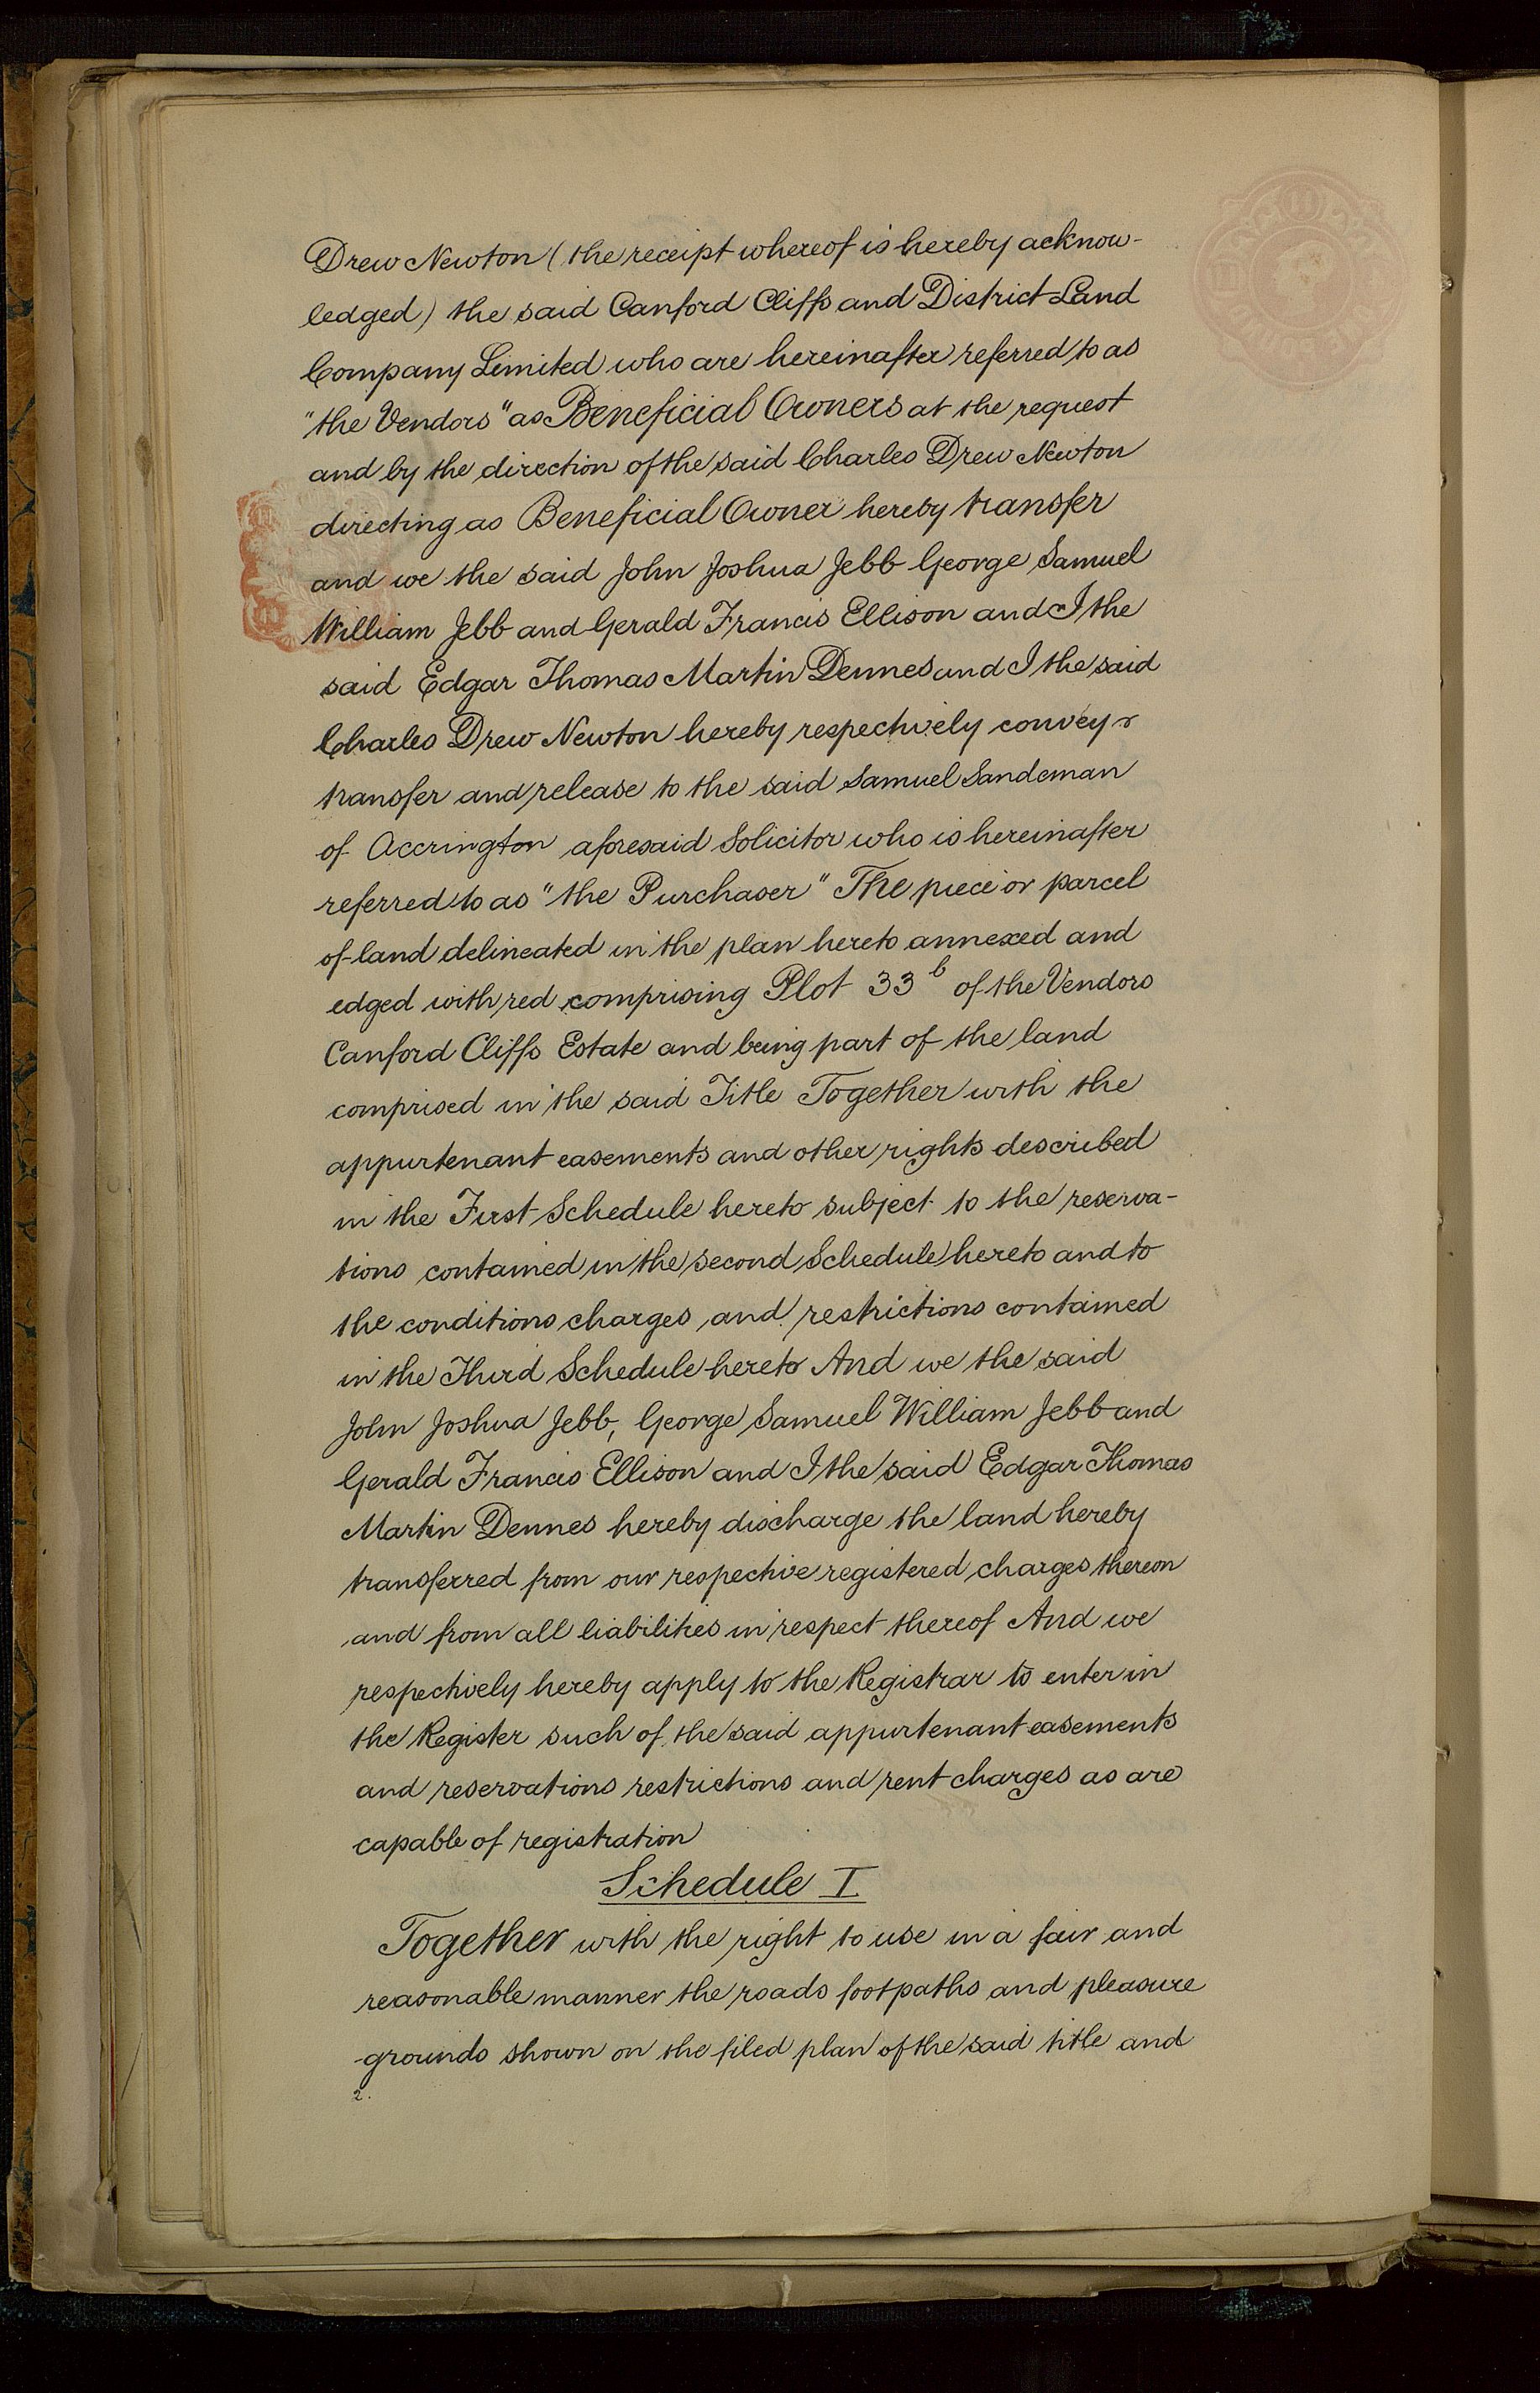 Drew Newton (the receipt whereof is hereby acknow-
ledged) the said Canford Cliffs and District Land
Company Limited who are hereinafter referred to as
"the Vendors" as Beneficial Owners at the request
and by the direction of the said Charles Drew Newton
directing as Beneficial Owner hereby transfer
and we the said John Joshua Jebb George Samuel
William Jebb and Gerald Francis Ellison and I the
said Edgar Thomas Martin Dennes and I the said
Charles Drew Newton hereby respectively convey &
transfer and release to the said Samuel Sandeman
of Accrington aforesaid Solicitor who is hereinafter
referred to as "the Purchaser" The piece or parcel
of land delineated in the plan hereto annexed and
edged with red comprising Plot 33 b of the Vendors
Canford Cliffs Estate and being part of the land
comprised in the said Title Together with the
appurtenant easements and other rights described
in the First Schedule hereto subject to the reserva-
tions contained in the second Schedule hereto and to
the conditions charges and restrictions contained
in the Third Schedule hereto And we the said
John Joshua Jebb, George Samuel William Jebb and
Gerald Francis Ellison and I the said Edgar Thomas
Martin Dennes hereby discharge the land hereby
transferred from our respective registered charges thereon
and from all liabilities in respect thereof And we
respectively hereby apply to the Registrar to enter in
the Register such of the said appurtenant easements
and reservations restrictions and rent charges as are
capable of registration
Schedule I
Together with the right to use in a fair and
reasonable manner the roads footpaths and pleasure
grounds shown on the filed plan of the said title and
2.